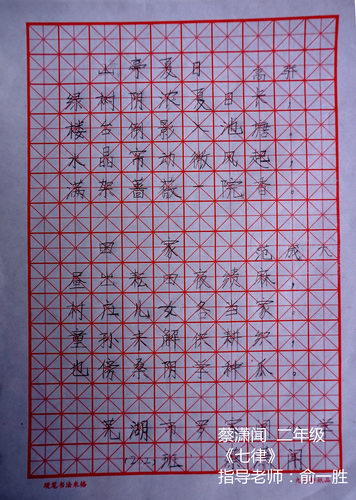 山亭夏日 高骈
绿树阴浓夏日长，
楼台倒影入池塘。
水晶帘动微风起，
满架蔷薇一院香。
田家 范成大
昼出耘田夜绩麻，
村庄儿女各当家。
童孙未解供耕织，
也傍桑阴学种瓜。
芜湖市 学
班 闻
蔡潇闻 二年级
《七律》
指导老师：俞一胜
硬笔书法米格